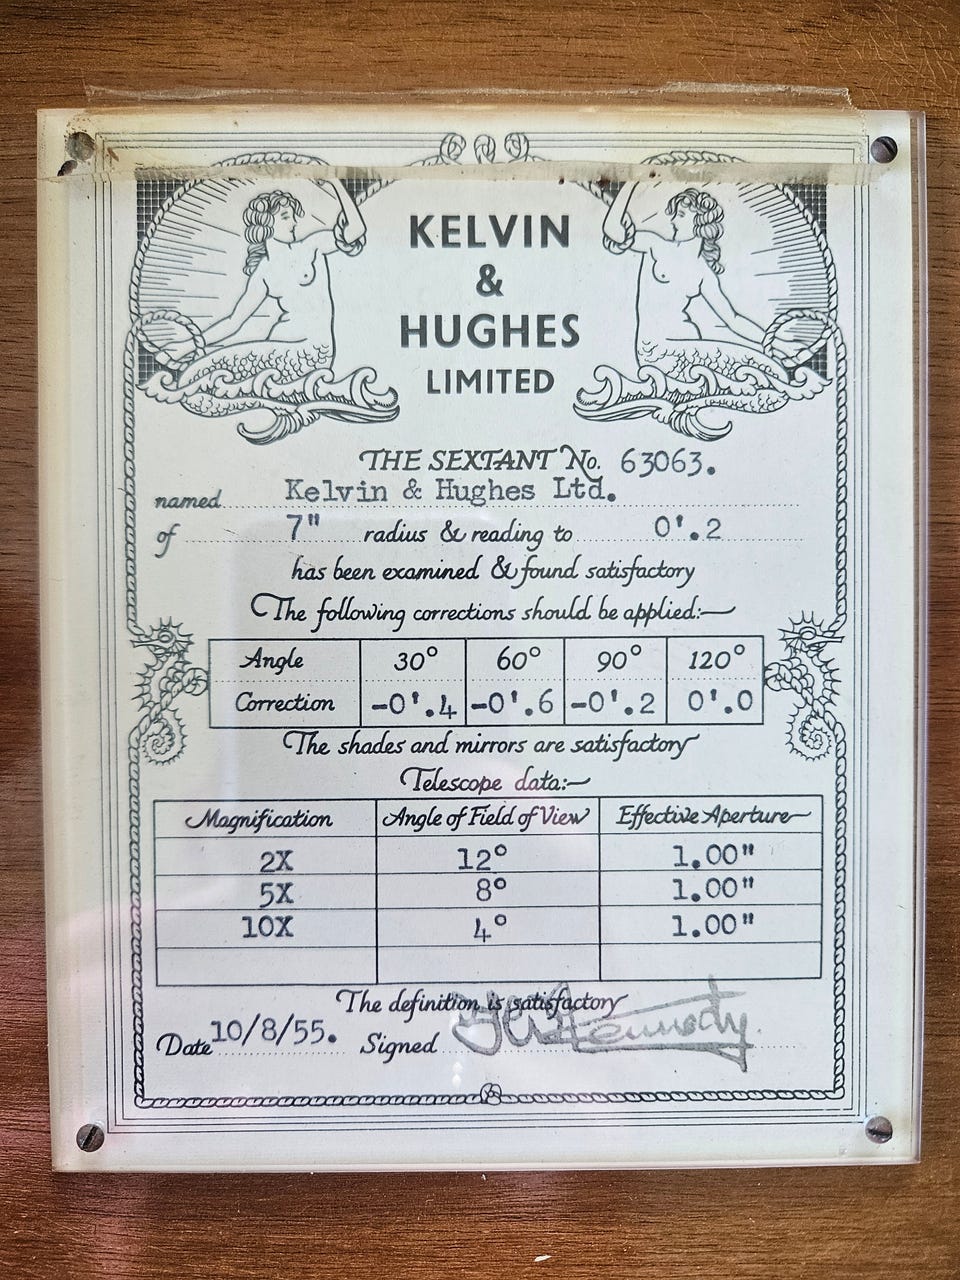 KELVIN
&
HUGHES
LIMITED
THE SEXTANT No. 63063.
named Kelvin & Hughes Ltd.
of 7" radius & reading to 0'.2
has been examined & found satisfactory
The following corrections should be applied:—
Angle 30° 60° 90° 120°
Correction -0'.4 -0'.6 -0'.2 0'.0
The shades and mirrors are satisfactory
Telescope data:—
Magnification Angle of Field of View Effective Aperture
2X 12° 1.00"
5X 8° 1.00"
10X 4° 1.00"
The definition is satisfactory
Date 10/8/55. Signed Kennedy